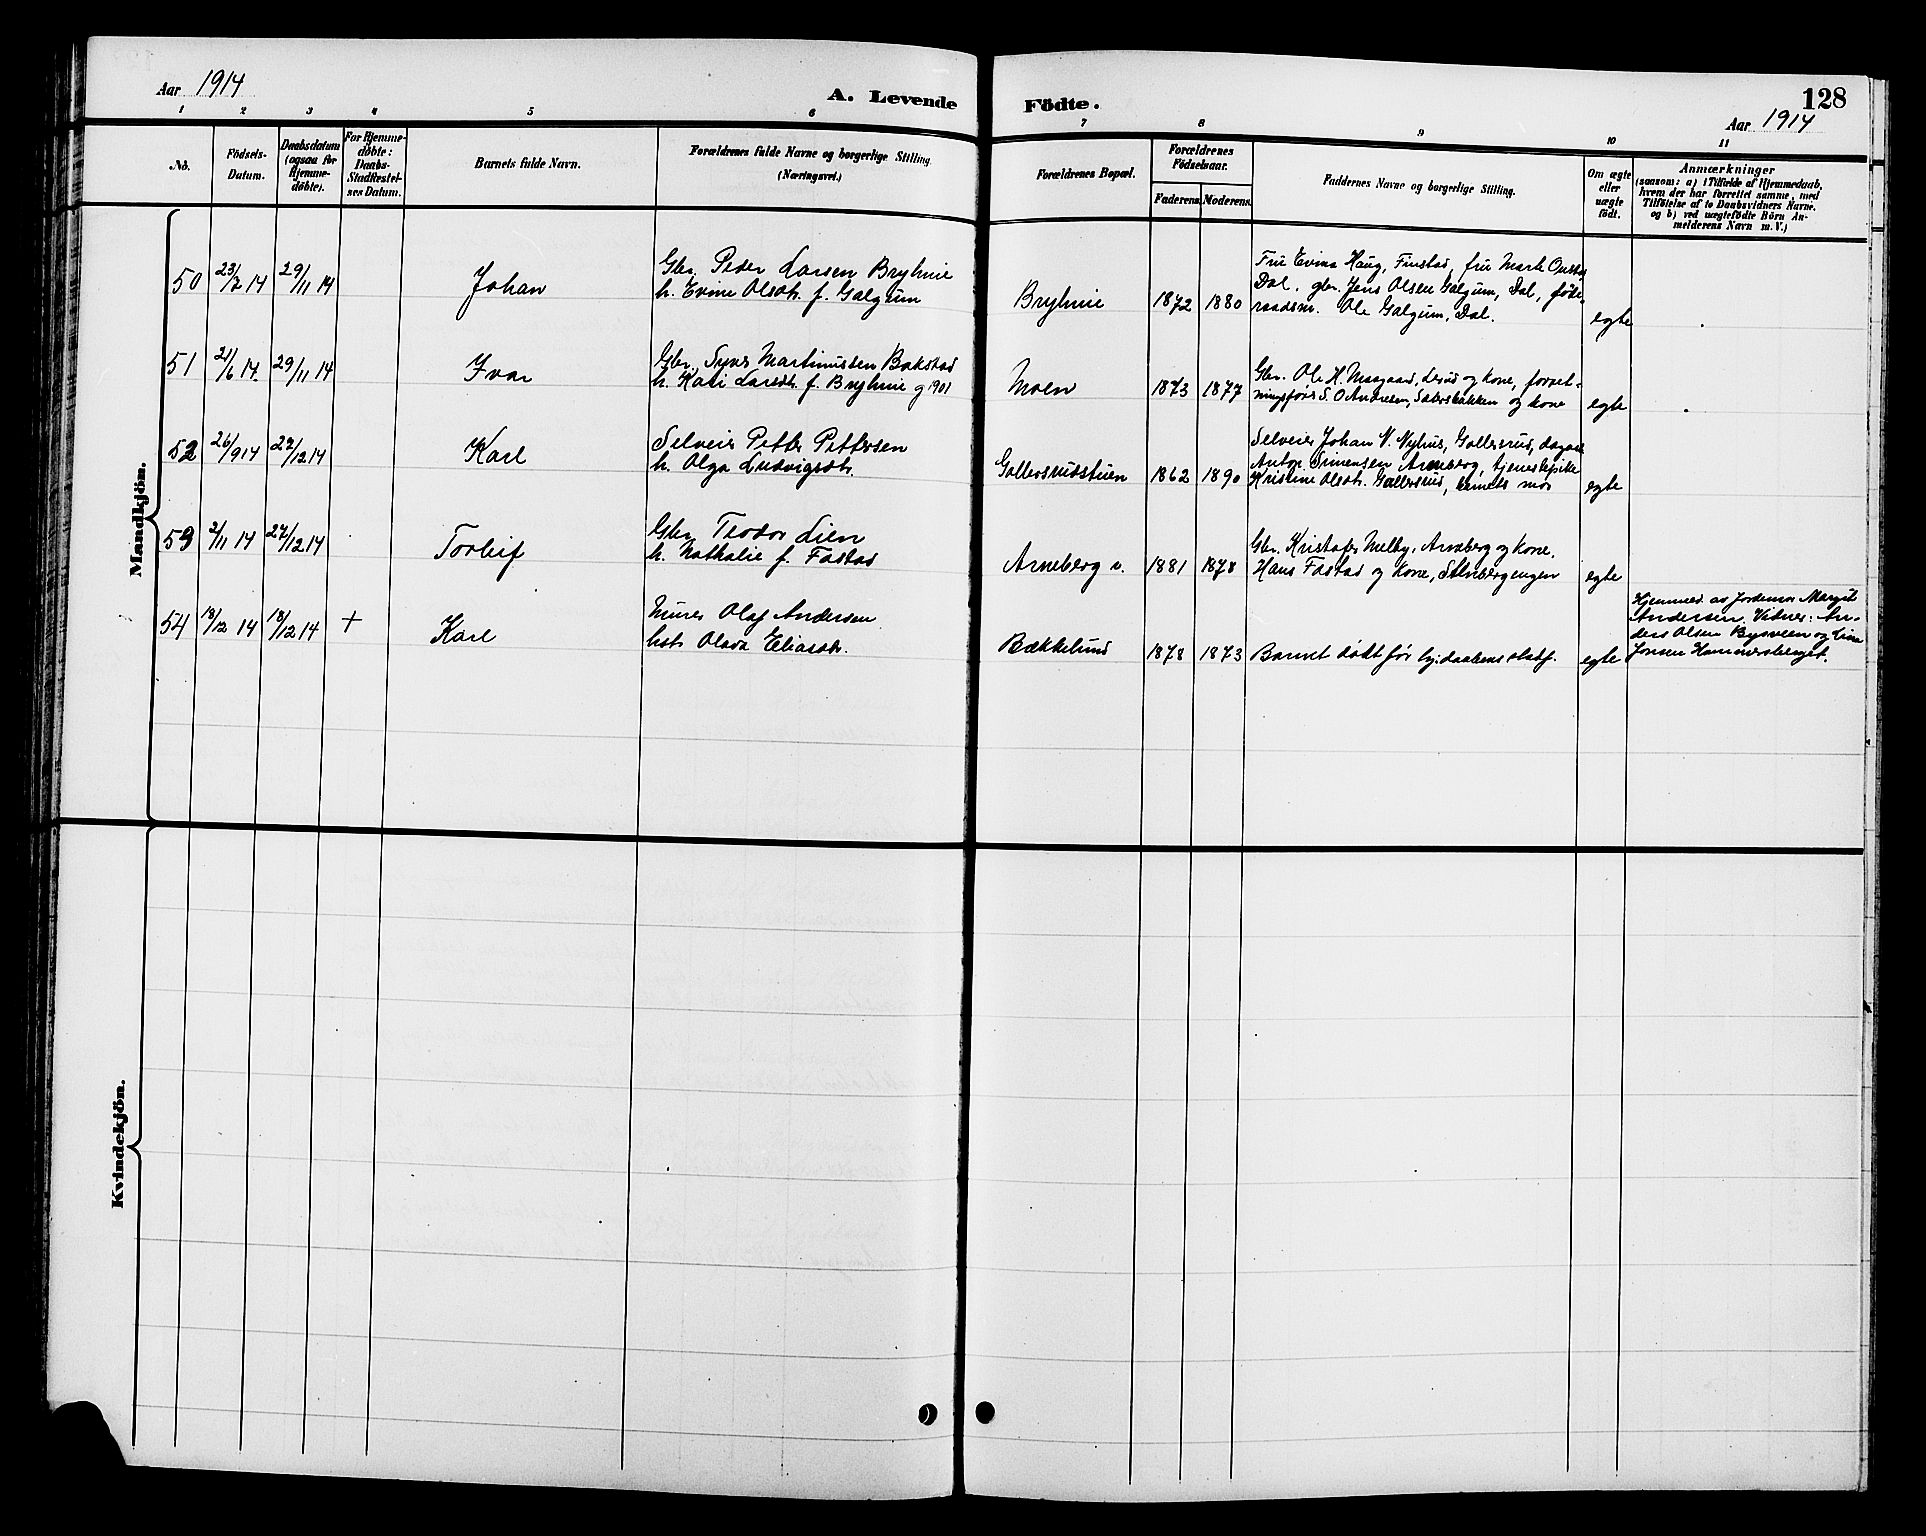 Aar 1914
A. Levende
Födte.
128
Aar 1914
1 2 3 4 5 6 7 8 9 10 11
No.
Födsels-
Datum.
Daabsdatum
(ogsaa for
Hjemme-
döbte).
For Hjemme-
döbte:
Daabs-
Stadfæstel-
ses Datum.
Barnets fulde Navn.
Forældrenes fulde Navne og borgerlige Stilling.
(Næringsvei.)
Forældrenes Bopæl.
Forældrenes
Födselsaar.
Faderens. Moderens.
Faddernes Navne og borgerlige Stilling.
Om ægte
eller
uægte
födt.
Anmærkninger
(saasom: a) i Tilfælde af Hjemmedaab,
hvem der har forrettet samme, med
Tilföielse af to Daabsvidners Navne.
og b) ved uægtefödte Börn An-
melderens Navn m. V.)
Mandkjön.
50 23/2 14 29/11 14 Johan
Gbr. Peder Larsen Bryhnie
h. Evine Olsdtr. f. Galgum
Bryhnie 1872 1880
Fru Evina Haug, Finstad, fru Marte
Dal, gbr. Jens Olsen Galgum, Dal, føde-
raadsm. Ole Galgum, Dal.
egte
51 21/6 14. 29/11 14 Ivar
Gbr. Syver Martinussen Bakstad
h. Kari Larsdtr. f. Bryhnie g 1901
Moen 1873 1877
Gbr. Ole H. og kone, forret-
ningsfører S. O Andresen, og kone
egte
52 26/9 14 27/12 14 Karl
Selveier Petter Pettersen
h. Olga Ludvigsdtr.
Gallersrudstuen 1862 1890
Selveier Johan N. Nyhus, Gallersrud, dagarb
Anton Simensen Arneberg, tjenestepike
Kristine Olsdtr. Gallersrud, barnets mor
egte
53 2/11 14 27/12 14 Torleif
Gbr. Teodor Lien
h. Nathalie f. Fastad
Arneberg v. 1881 1878
Gbr. Kristofer Melby, Arneberg og kone.
Hans Fastad og kone, Stenbergengen
egte
54 18/12 14 18/12 14 + Karl
Murer Olaf Andersen
hst. Olava Eliasdtr.
Bækkelund 1878 1873
Barnet dødt før hj.daabens stadf.
egte
Hjemmed. av Jordemor Margit
Andersen. Vidner: An-
ders Olsen Bysveen og Line
Jonsen Hammersberget.
Kvindekjön.